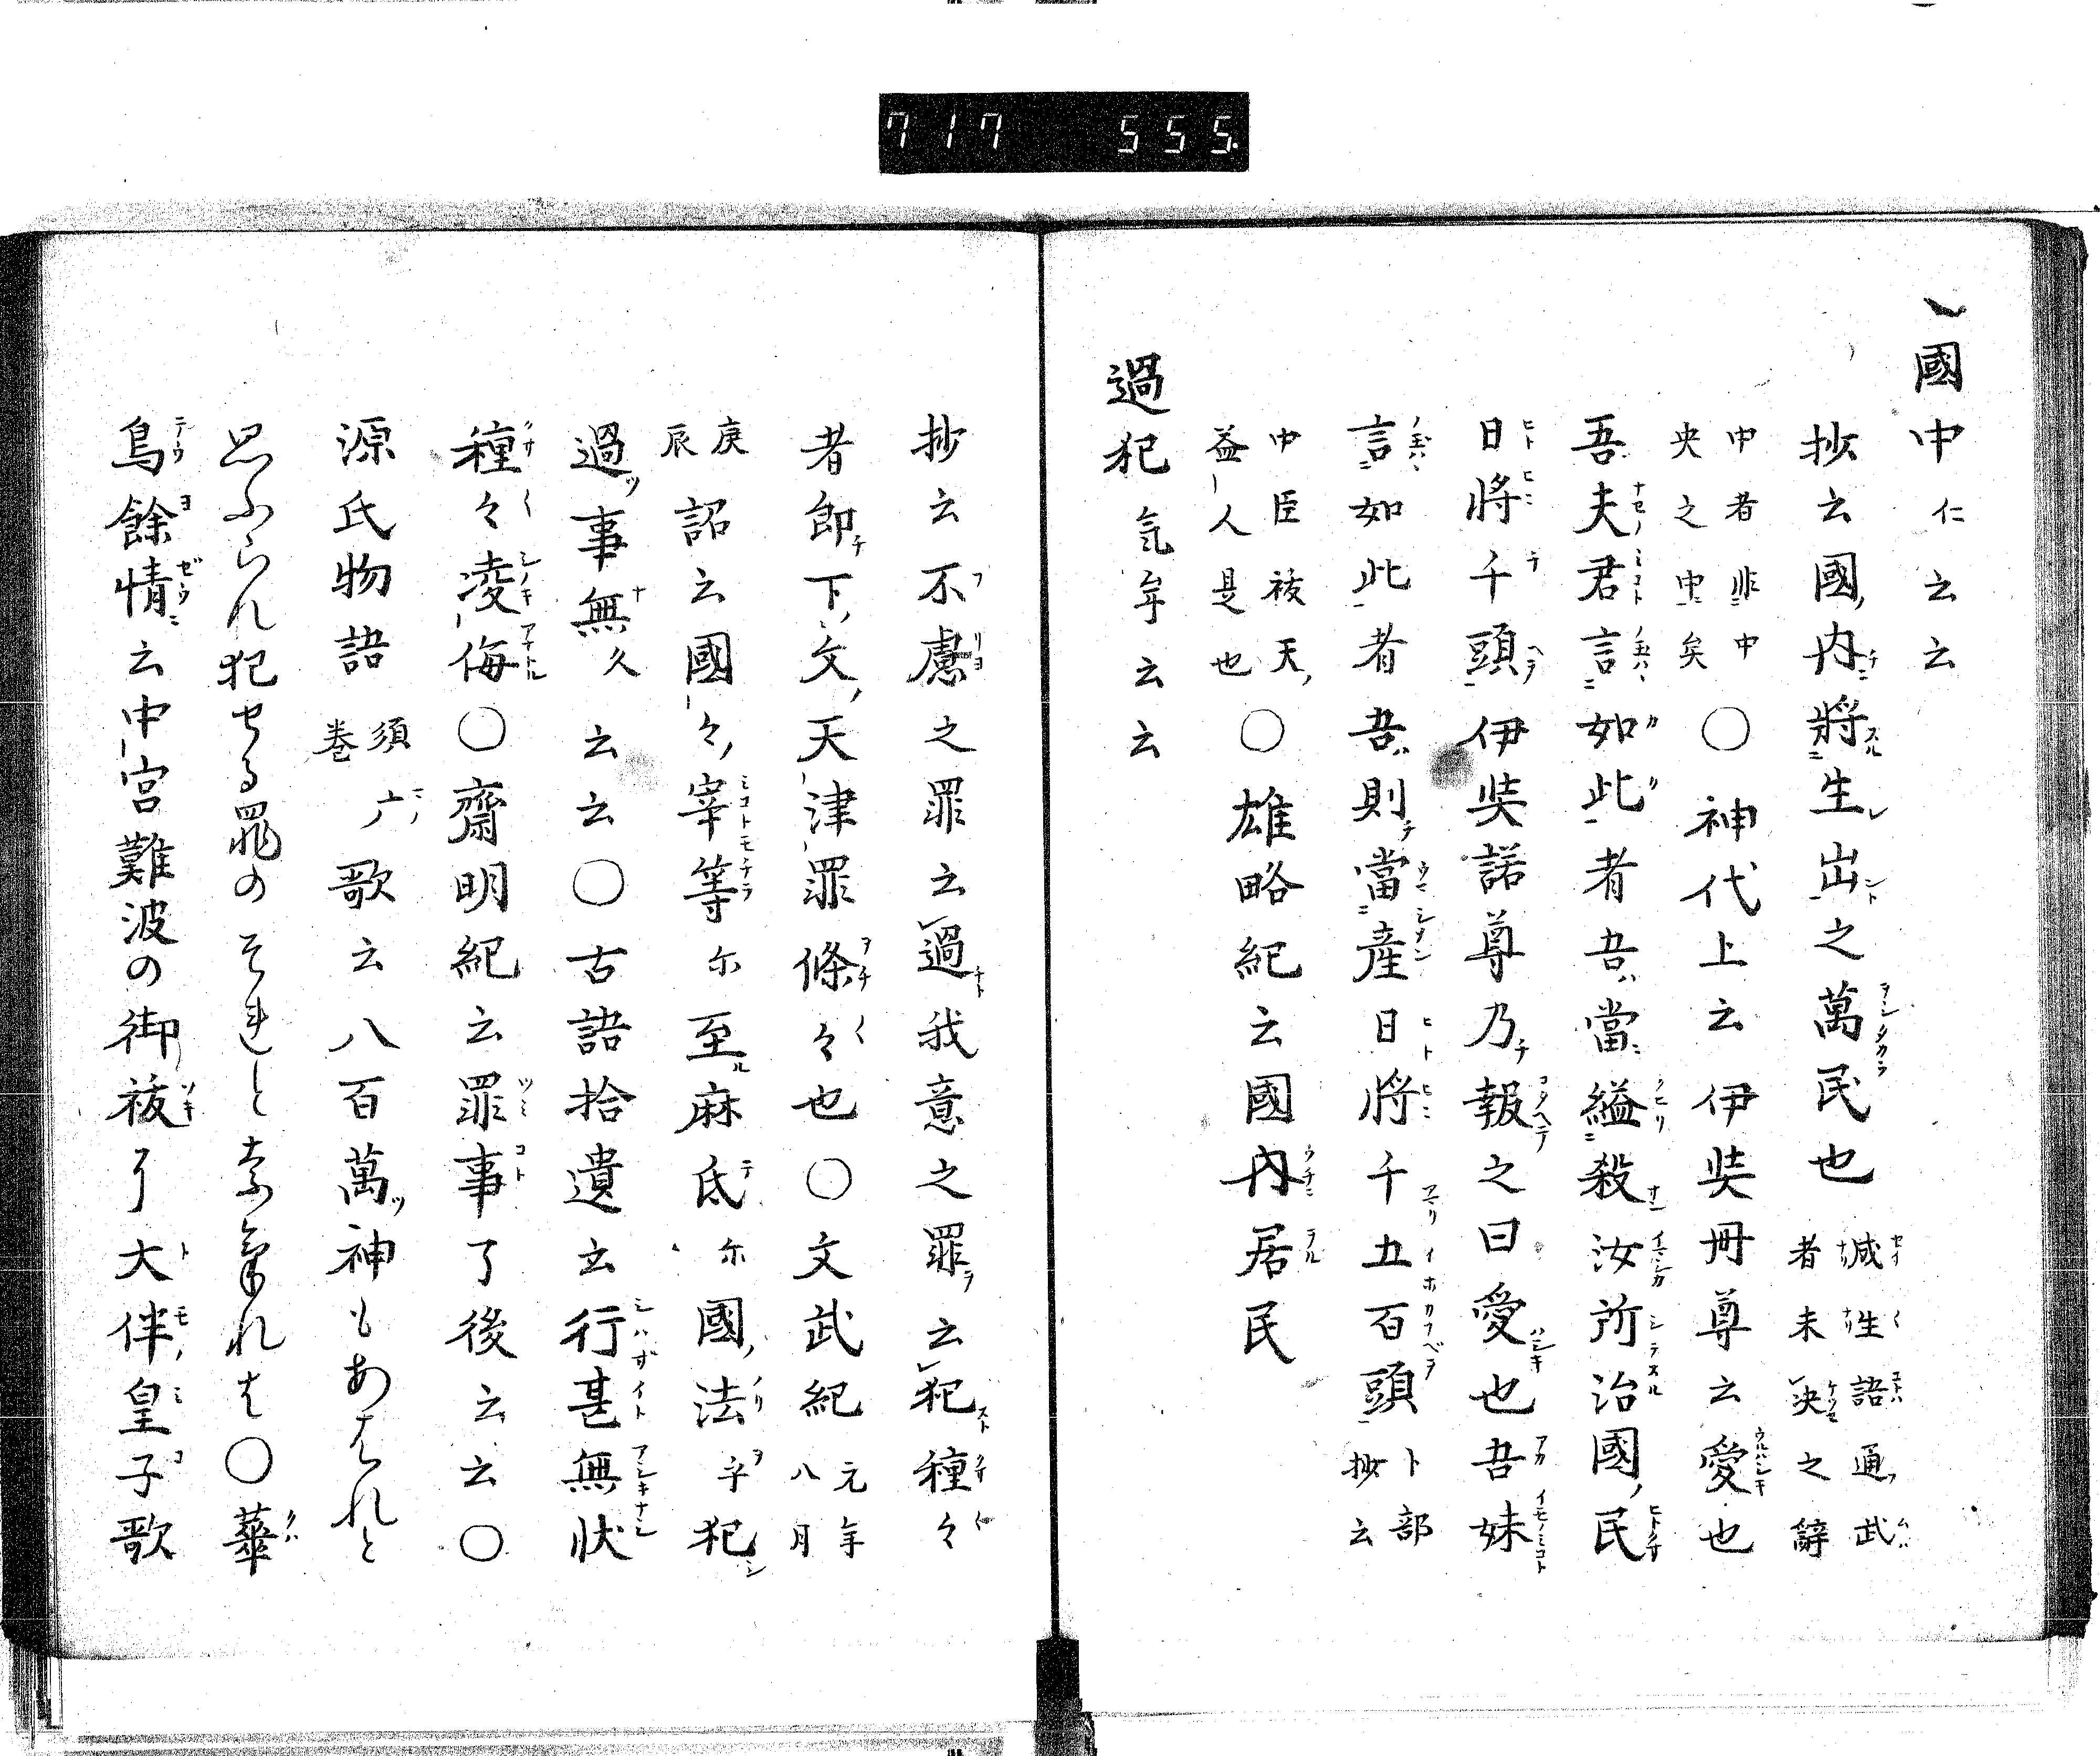 717 555.
國中仁云云
抄云國内將生出之萬民也 減性語通武者未決之辭
中者非中央之中矣 〇神代上云伊奘冊尊云愛也
吾夫君言如此者吾當縊殺汝所治國民
日將千頭伊奘諾尊乃報之曰愛也吾妹
言如此者吾則當産日將千五百頭 卜部抄云
中臣祓天益人是也 〇雄略紀云國内居民
過犯氣牟云云
抄云不慮之罪云過我意之罪云犯種々
者即下文天津罪條々也〇文武紀 元年八月
庚辰 詔云國々宰等尓至麻氐尓國法乎犯
過事無久云云〇古語拾遺云行甚無状
種々凌侮〇齋明紀云罪事了後云云〇
源氏物語 須巻 六歌云八百萬神もあはれと
思ふらん犯せる罪のそれとなけれは〇華
鳥餘情云中宮難波の御祓了大伴皇子歌